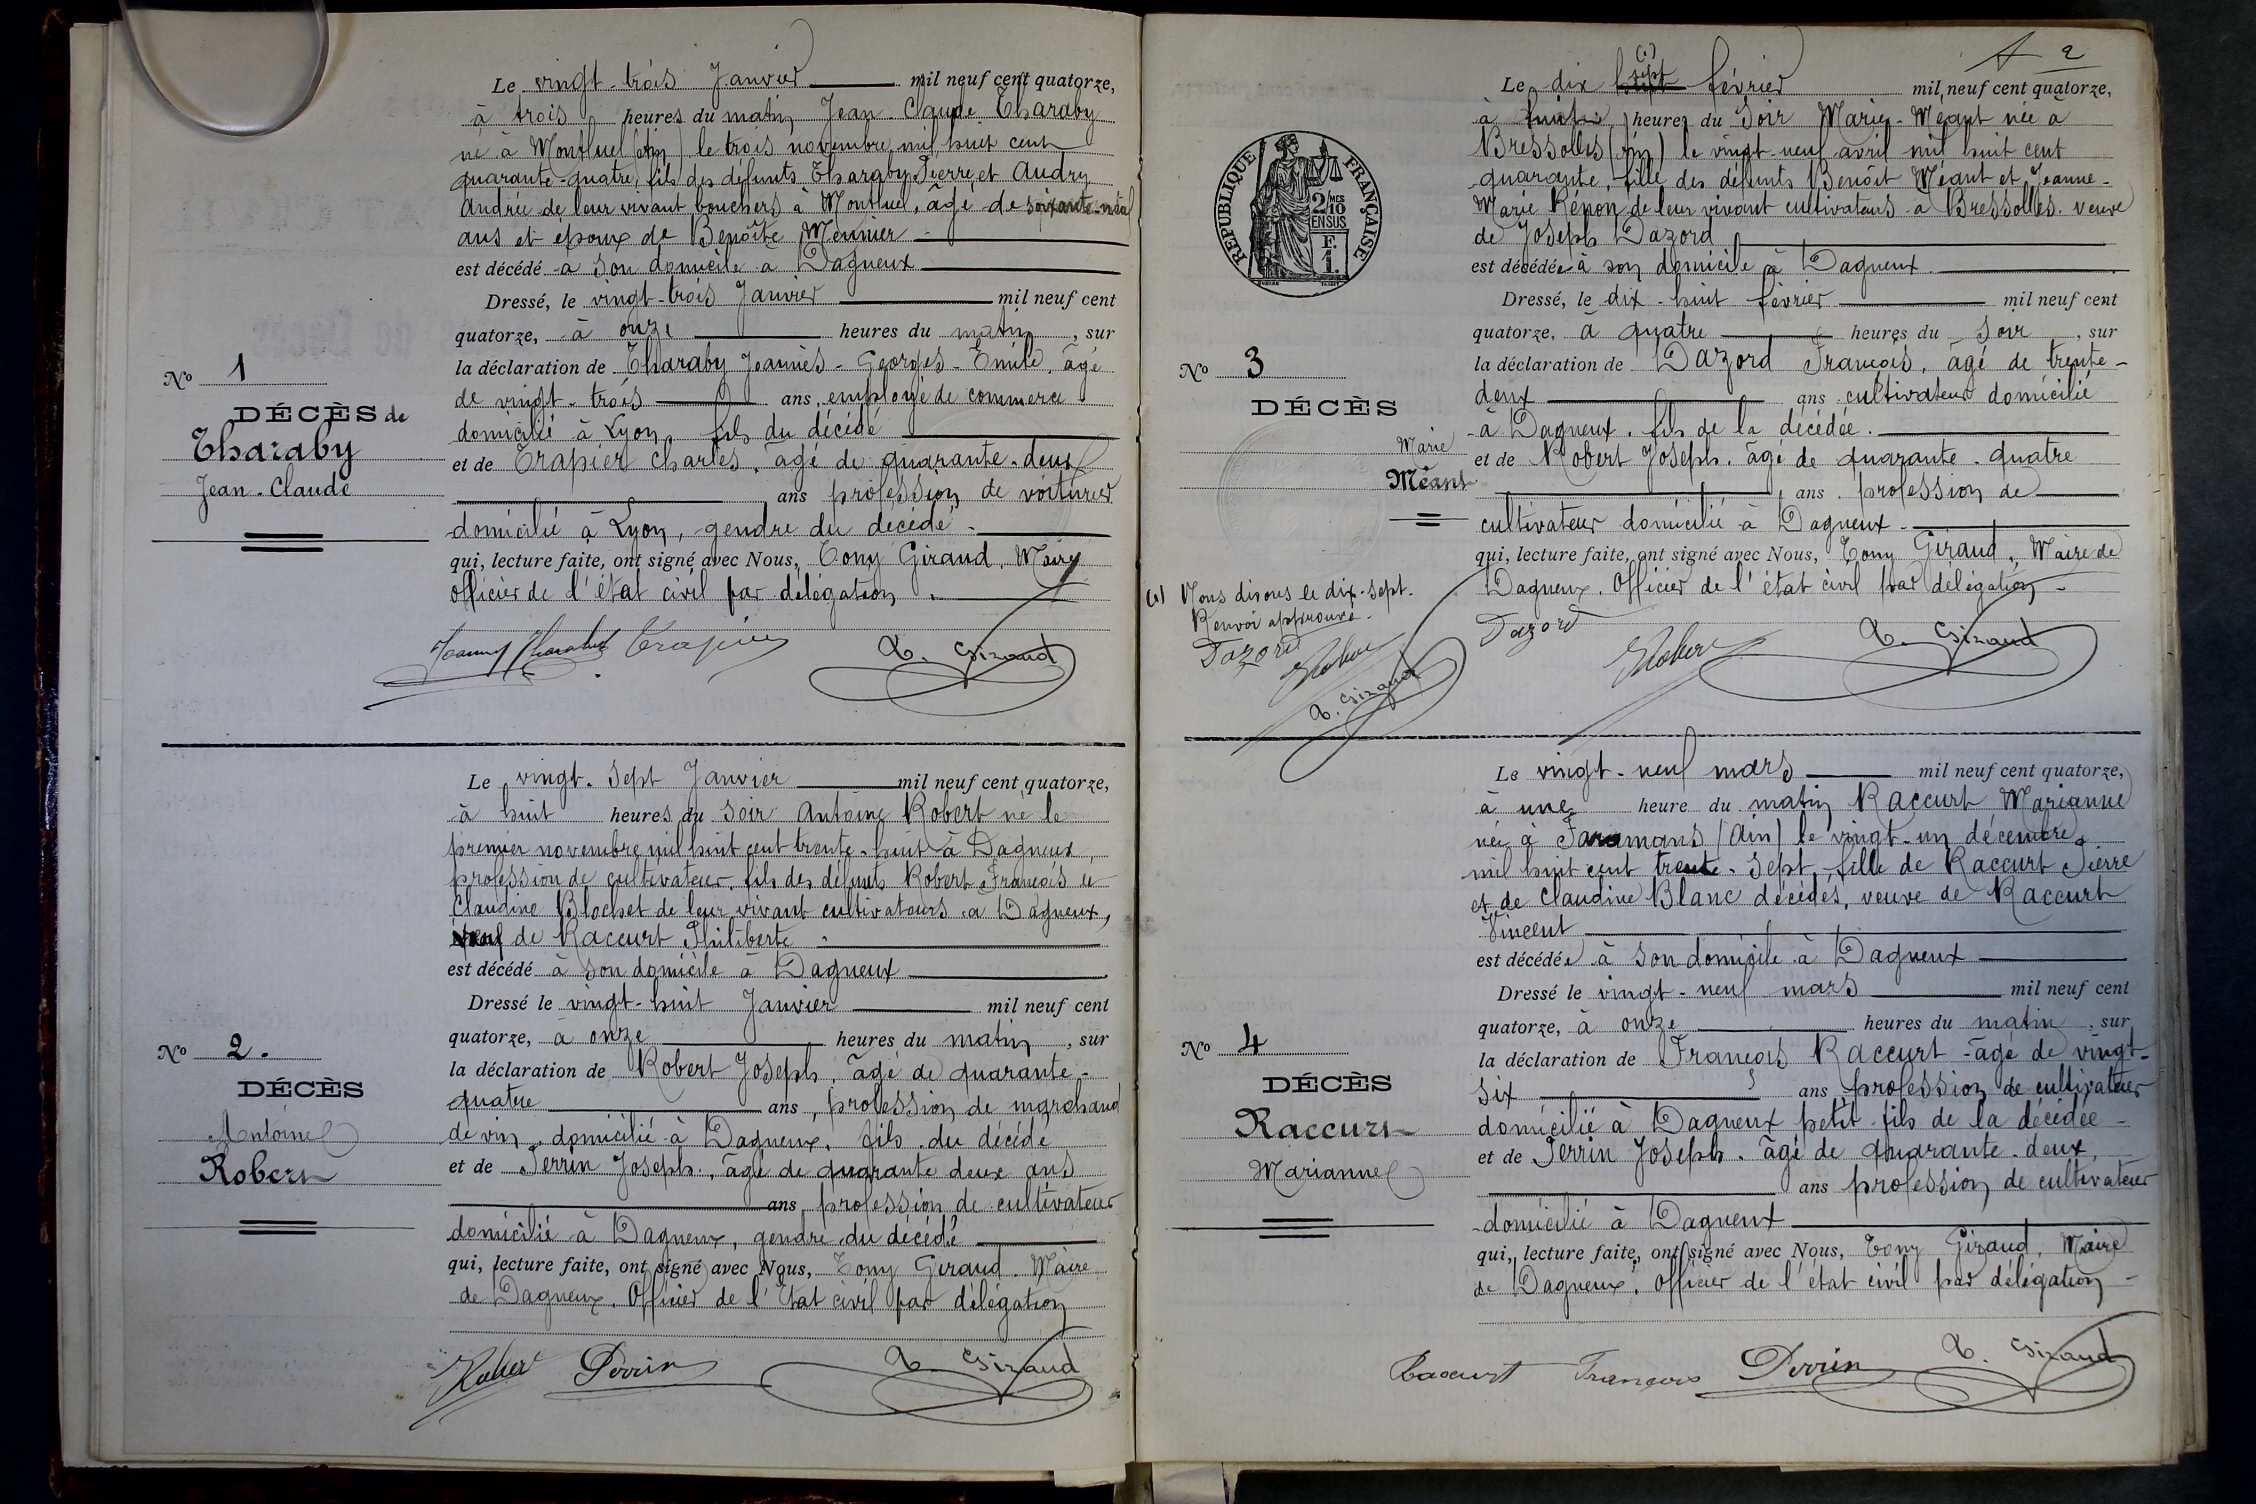 Le vingt-trois Janvier mil neuf cent quatorze,
à trois heures du matin Jean-Claude Tharaby
né à Montluel (Ain) le trois novembre mil huit cent
quarante-quatre, fils des défunts Tharaby Pierre et Audry
Andrée de leur vivant bouchers à Montluel, âgé de soixante-neuf
ans et époux de Benoîte Meunier
est décédé à son domicile à Dagneux
Dressé, le vingt-trois Janvier mil neuf cent
quatorze, à onze heures du matin, sur
la déclaration de Tharaby Joannès-Georges-Emile, âgé
de vingt-trois ans, employé de commerce
domicilié à Lyon, fils du décédé
et de Trapier Charles, âgé de quarante-deux
ans profession de voiturier
domicilié à Lyon, gendre du décédé.
qui, lecture faite, ont signé avec Nous, Tony Giraud, Maire
officier de l'état civil par délégation.
Trapier T. Giraud
No 1
DÉCÈS de
Tharaby
Jean-Claude
Le vingt-sept Janvier mil neuf cent quatorze,
à huit heures du soir Antoine Robert né le
premier novembre mil huit cent trente-huit à Dagneux,
profession de cultivateur, fils des défunts Robert François et
Claudine Blochet de leur vivant cultivateurs à Dagneux,
veuf de Raccurt Philiberte
est décédé à son domicile à Dagneux
Dressé le vingt-huit Janvier mil neuf cent
quatorze, à onze heures du matin, sur
la déclaration de Robert Joseph, âgé de quarante-
quatre ans, profession de marchand
de vin, domicilié à Dagneux, fils du décédé
et de Perrin Joseph, âgé de quarante deux ans
ans profession de cultivateur
domicilié à Dagneux, gendre du décédé
qui, lecture faite, ont signé avec Nous, Tony Giraud. Maire
de Dagneux. Officier de l'Etat civil par délégation
Robert Perrin T. Giraud
No 2.
DÉCÈS
Antoine
Robert
2
(1)
sept
Le dix huit février mil neuf cent quatorze,
à heures du Soir Marie Méant née à
Bressolles (Ain) le vingt-neuf avril mil huit cent
quarante, fille des défunts Benoît Méant et Jeanne-
Marie Rénon de leur vivant cultivateurs à Bressolles. veuve
de Joseph Dazord
est décédée à son domicile à Dagneux
Dressé, le dix-huit février mil neuf cent
quatorze, à quatre heures du soir, sur
la déclaration de Dazord François, âgé de trente-
deux ans cultivateur domicilié
à Dagneux. fils de la décédée.
et de Robert Joseph. âgé de quarante-quatre
ans. profession de
cultivateur domicilié à Dagneux.
qui, lecture faite, ont signé avec Nous, Tony Giraud, Maire de
Dagneux. Officier de l'état civil par délégation.
Dazord Robert T. Giraud
RÉPUBLIQUE FRANÇAISE
2/10 MES
EN SUS
F.
1.
No 3
DÉCÈS
Marie
Méant
(1) Nous disons le dix-sept.
Renvoi approuvé.
Dazord
Robert
T. Giraud
Le vingt-neuf mars mil neuf cent quatorze,
à une heure du matin Raccurt Marianne
née à Faramans (Ain) le vingt-un décembre
mil huit cent trente-sept, fille de Raccurt Pierre
et de Claudine Blanc décédés, veuve de Raccurt
Vincent
est décédée à son domicile à Dagneux
Dressé le vingt-neuf mars mil neuf cent
quatorze, à onze heures du matin, sur
la déclaration de François Raccurt âgé de vingt-
six ans profession de cultivateur
domicilié à Dagneux petit-fils de la décédée
et de Perrin Joseph. âgé de quarante-deux,
ans profession de cultivateur
domicilié à Dagneux
qui, lecture faite, ont signé avec Nous, Tony Giraud, Maire
de Dagneux. Officier de l'état civil par délégation
Raccurt François Perrin T. Giraud
No 4
DÉCÈS
Raccurt
Marianne